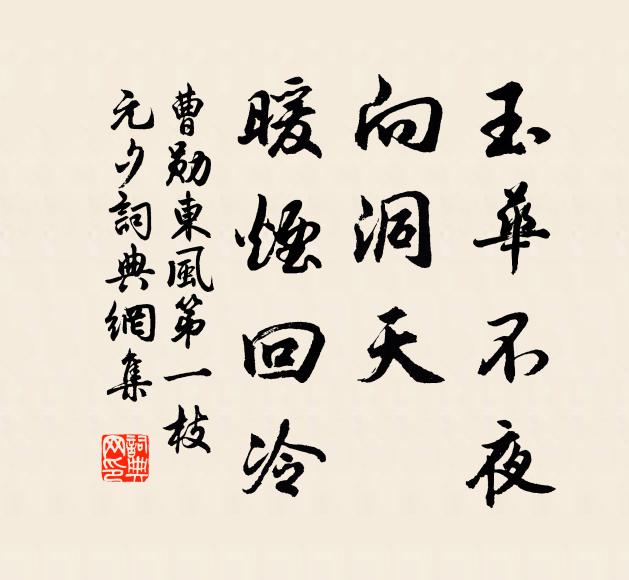 玉華不夜
向洞天
暖煙回冷
曹勛東風第一枝
元夕詞典網集
詞典网印